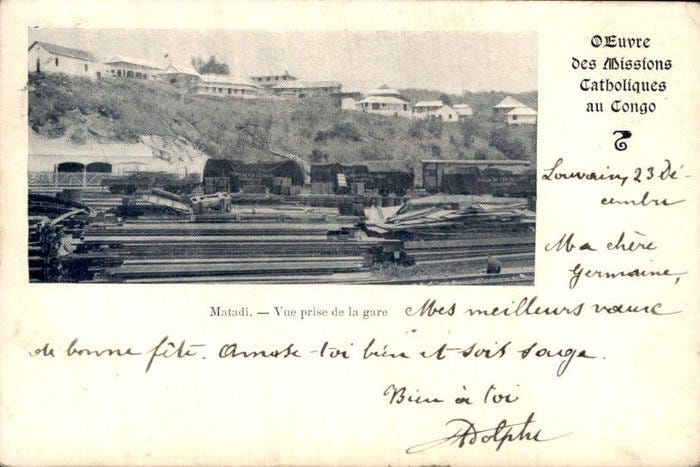 Œuvre
des Missions
Catholiques
au Congo
Louvain, 23 Dé-
cembre
Ma chère
Germaine,
Matadi. — Vue prise de la gare
Mes meilleurs vœux
de bonne fête. Amuse-toi bien et sois sage.
Bien à toi
Adolphe